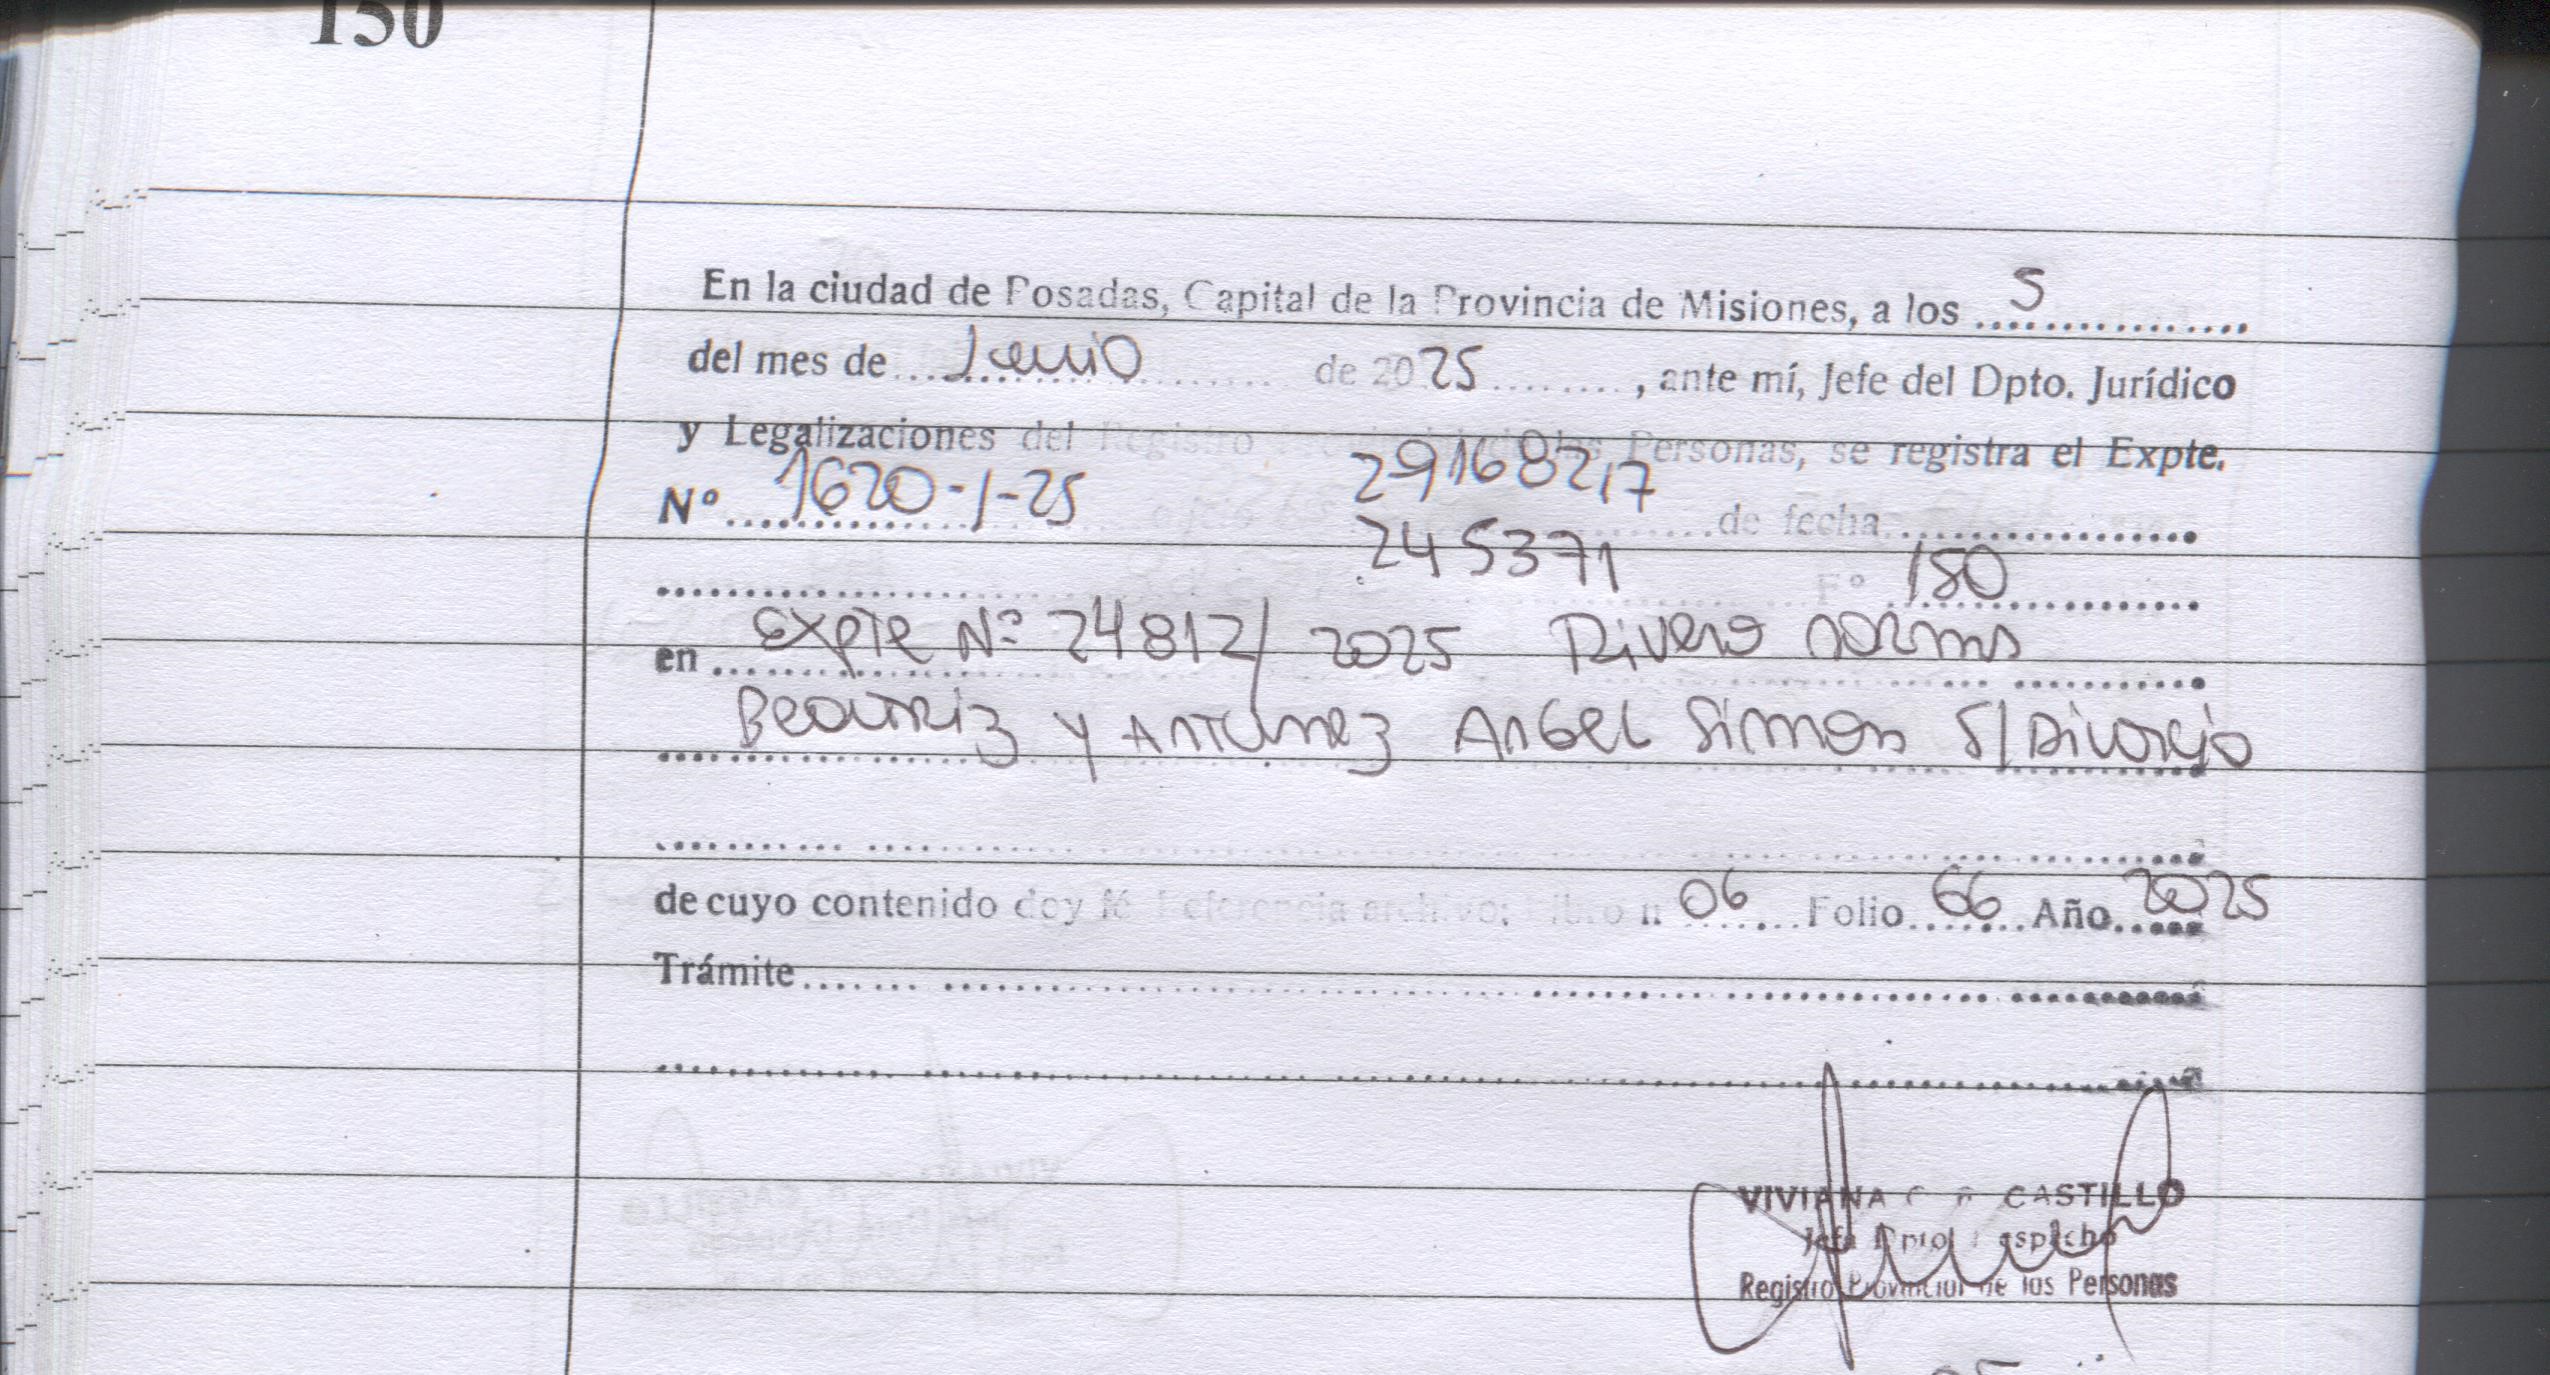 150
En la ciudad de Posadas, Capital de la Provincia de Misiones, a los 5
del mes de Junio de 2025, ante mí, Jefe del Dpto. Jurídico
y Legalizaciones del Registro de las Personas, se registra el Expte.
Nº 1620-1-25 2916821,7 de fecha
245371 Fº 150
en Expte Nº 24812/2025 Rivero Norma
Beatriz y Antunez Angel Simon S/Divorcio
de cuyo contenido doy fé Referencia archivo: libro n 06 Folio 66 Año 2025
Trámite
VIVIANA CASTILLO
Jefa Dpto Despacho
Registro Provincial de las Personas